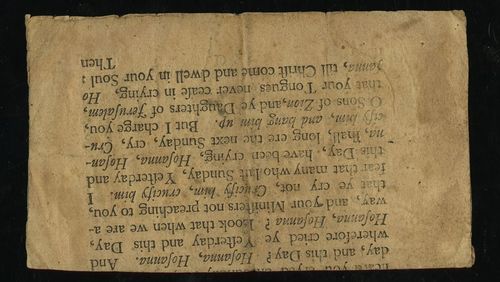 day, and this day? Hoſanna, Hoſanna. And
wherefore cried ye Yeſterday and this Day,
Hoſanna, Hoſanna? I look that when we are a-
way, and your Miniſters not preaching to you,
that ye cry not, Crucify him, crucify him. I
fear that many who laſt Sunday, Yeſterday and
this Day, have been crying, Hoſanna, Hoſan-
na, ſhall, long ere the next Sunday, cry, Cru-
cify him, and hang him up. But I charge you,
O Sons of Zion, and ye Daughters of Jeruſalem,
that your Tongues never ceaſe in crying, Ho
ſanna, till Chriſt come and dwell in your Soul:
Then